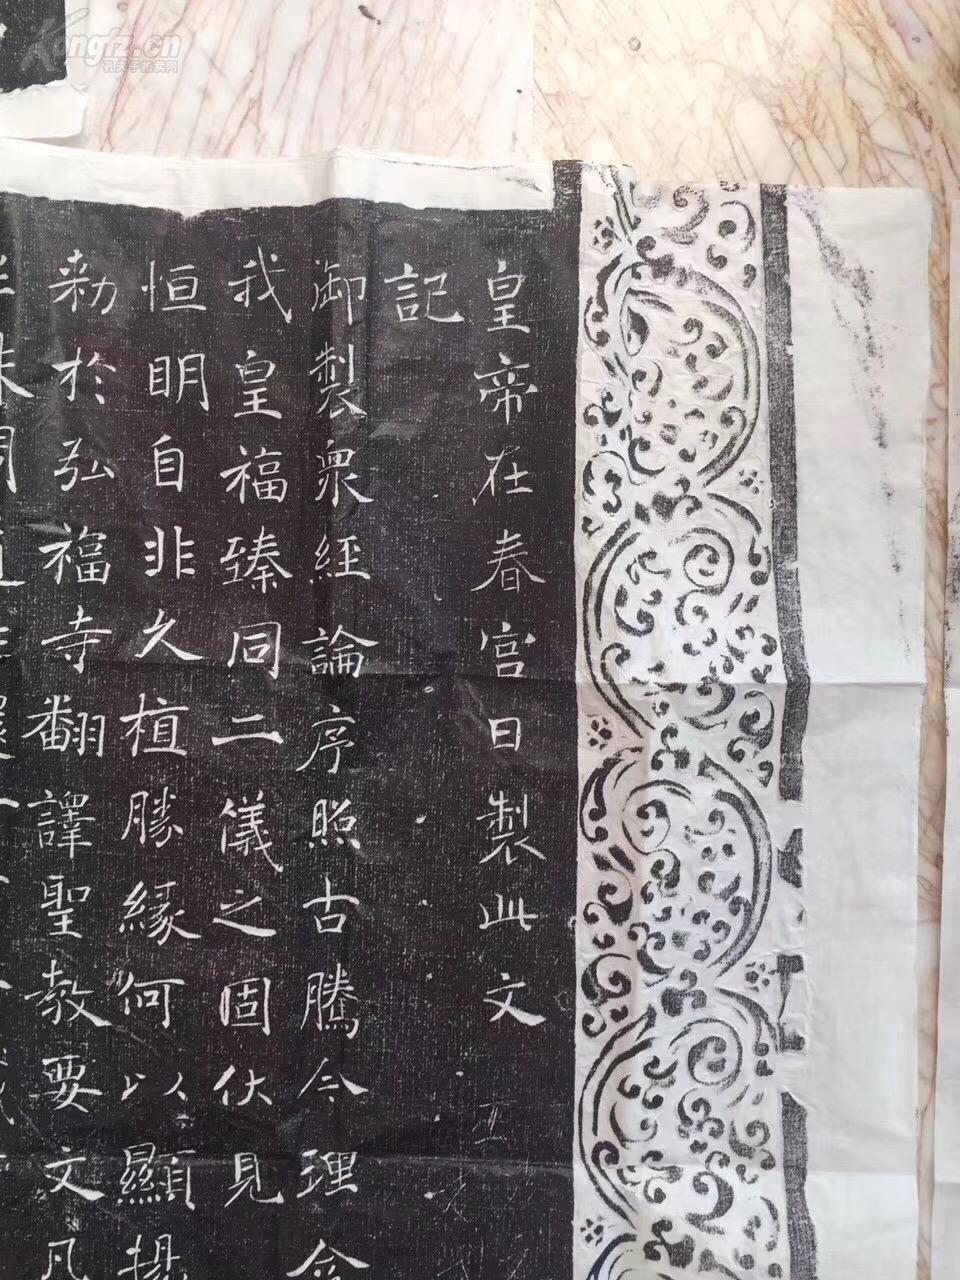 皇帝在春宮日製此文
記
御製衆經論序照古騰今理含
我皇福臻同二儀之固伏見
恒明自非久植勝緣何以顯揚
勑於弘福寺翻譯聖教要文凡
Kongfz.cn
孔夫子拍卖网